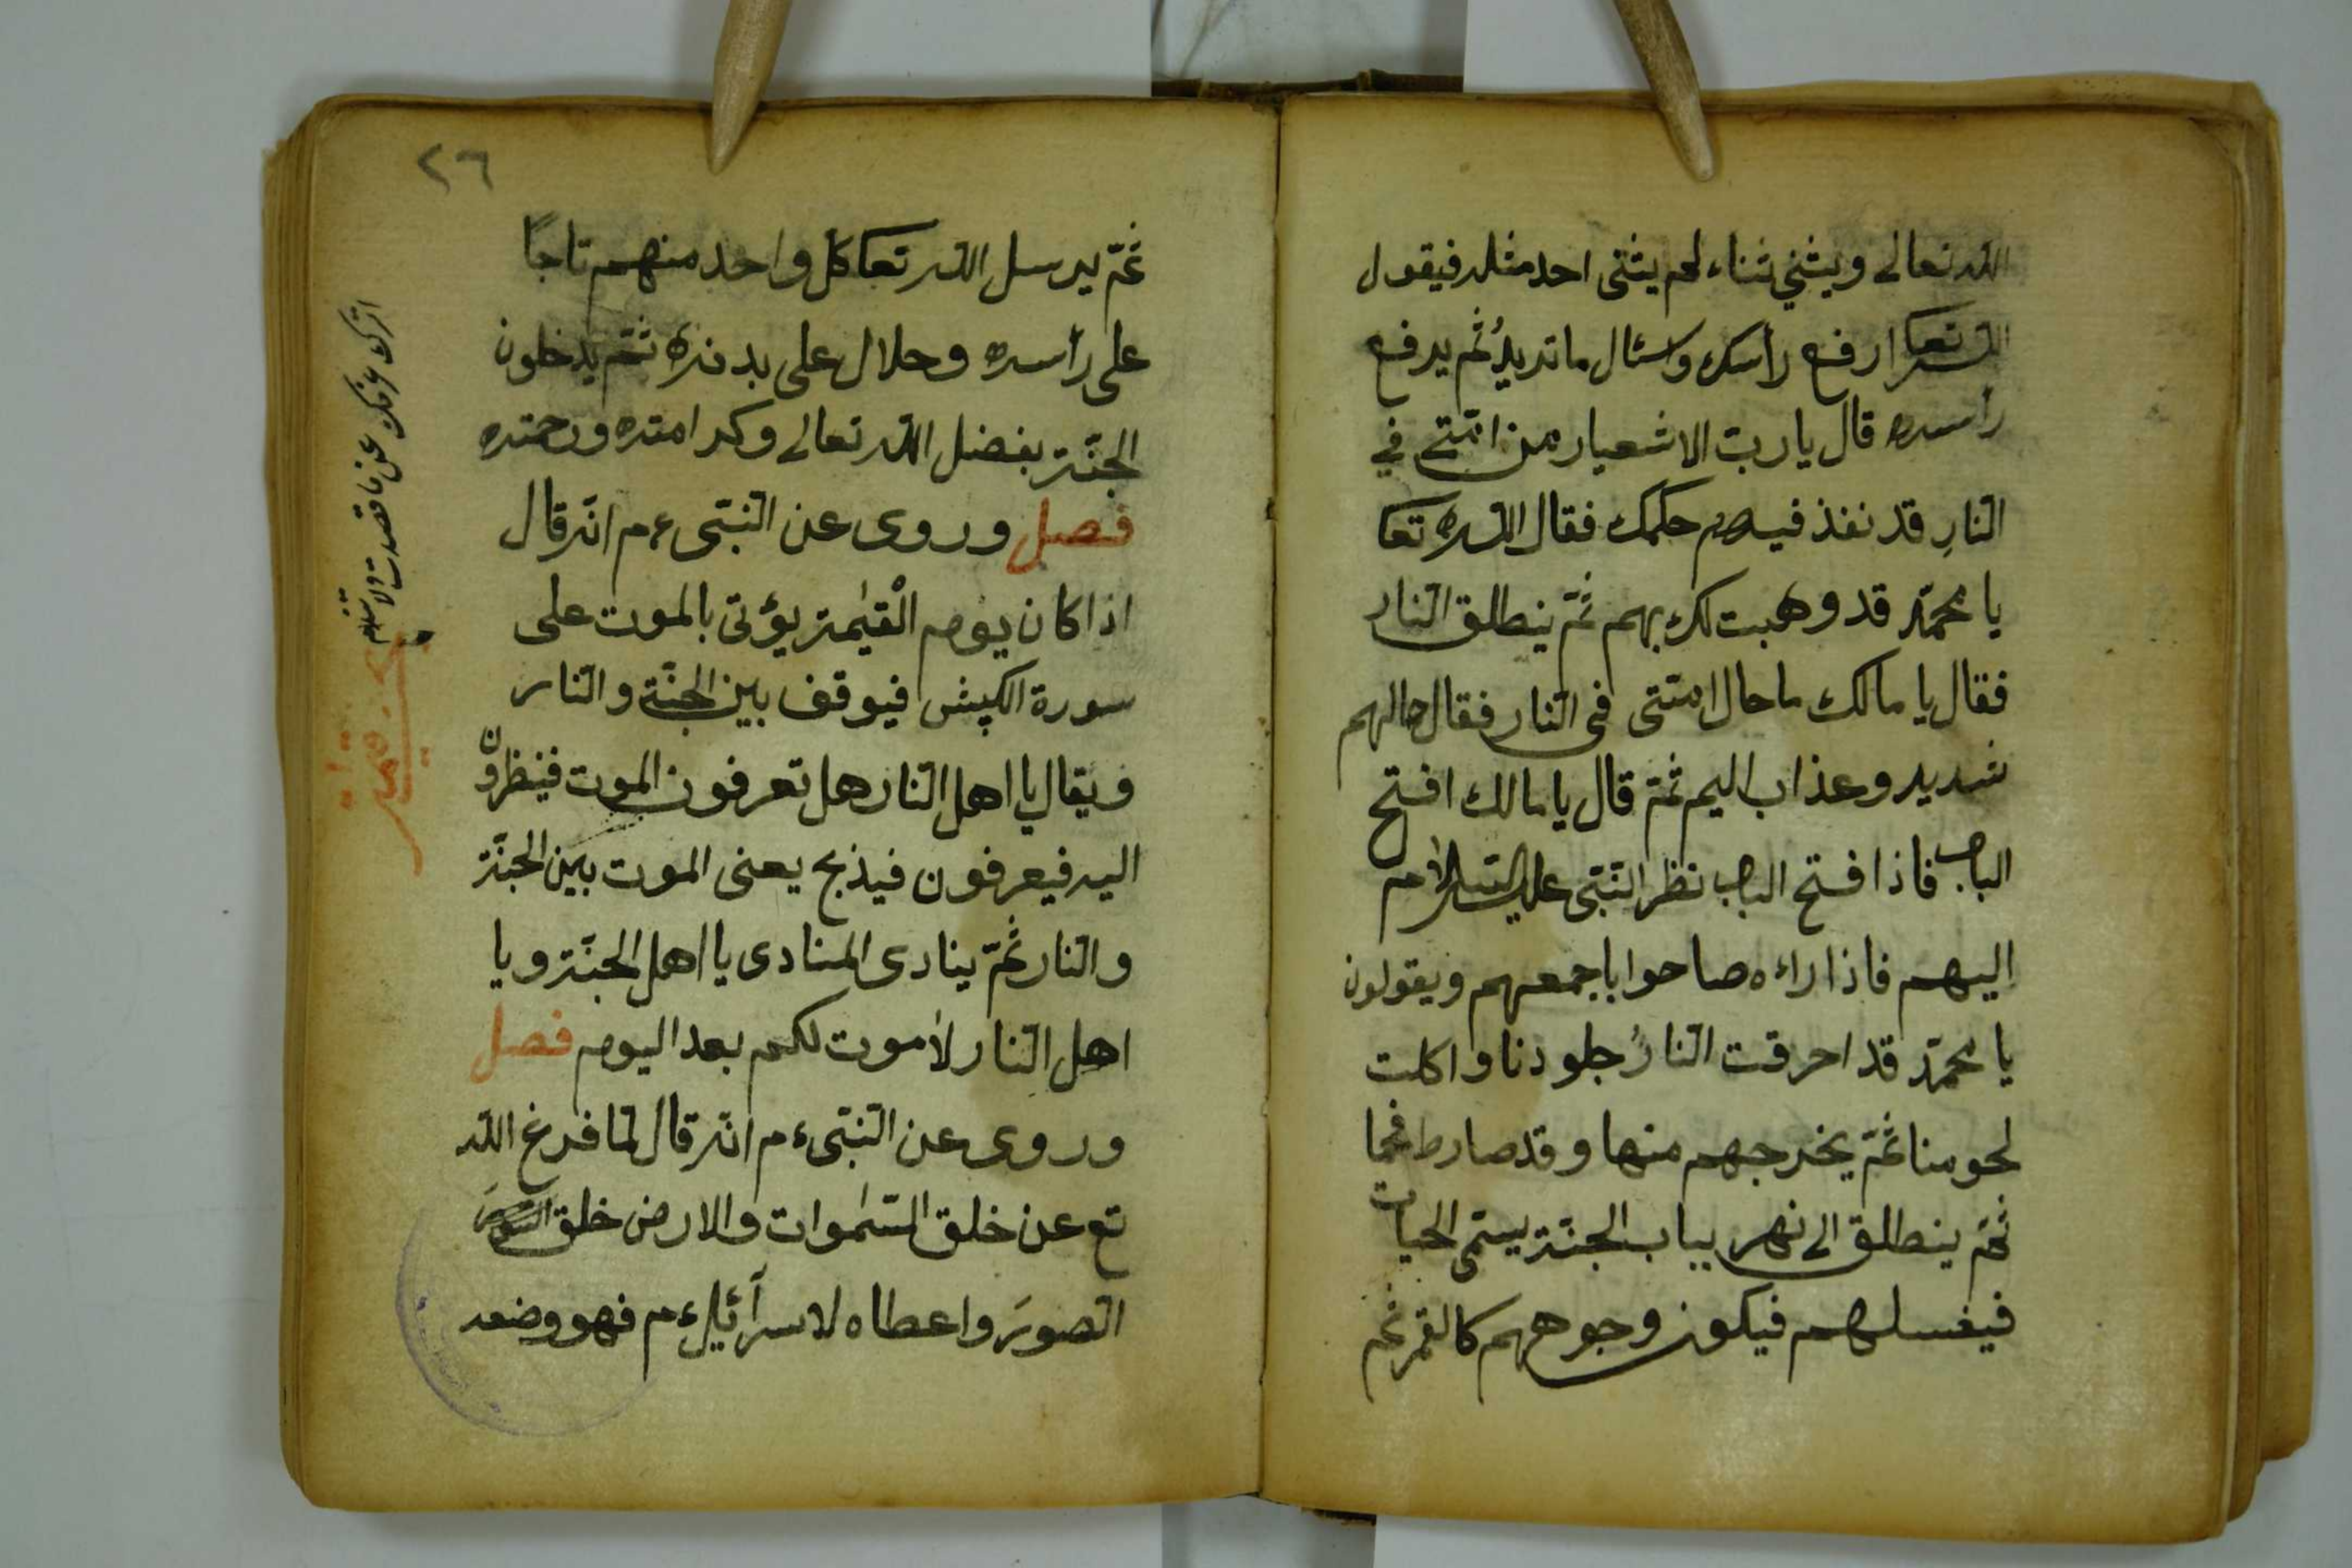 الله تعالى ويثني ثناء لم يثنى احد مثله فيقول
الله تعا ارفع رأسك واسئال ما تريد ثم يرفع
رأسه قال يا ربّ الاشعيار من امّتى في
النارِ قد نفذ فيهم حكمك فقال الله تعا
يا محمّد قد وهبت لك بهم ثمّ ينطلق النار
فقال يا مالك ما حال امّتى فى النار فقال حالهم
شديد وعذاب اليم ثمّ قال يا مالك افتح
الباب فاذا افتح الباب نظر النّبىّ عليه السّلام
اليهم فاذا راءه صاحوا باجمعهم ويقولون
يا محمّد قد احرقت النارُ جلودنا واكلت
لحومنا ثمّ يخرجهم منها وقد صارط فحما
ثمّ ينطلق الى نهر بباب الجنّة يسمّى الحيات
فيغسلهم فيكون وجوههم كالقمر ثم
٢٦
ثمّ يرسل الله تعا كل واحد منهم تاجاً
على رأسه وحلال على بدنه ثمّ يدخلون
الجنّة بفضل الله تعالى وكرامته ورحمته
فصل وروى عن النّبىّ ءم انّه قال
اذا كان يوم الْقيٰمة يؤتى بالموت على
سورة الكپش فيوقف بين الجنّة والنار
ويقال يا اهل النار هل تعرفون الموت فينظرون
اليه فيعرفون فيذبح يعنى الموت بين الجنّة
والنار ثمّ ينادى المنادى يا اهل الجنّة ويا
اهل النار لا موت لكم بعد اليوم فصل
وروى عن النّبىّ ءم انّه قال لمّا فرغ الله
تع عن خلق السّمٰوات والارض خلق
الصورَ واعطاه لاسرآئيل ءم فهو وضعه